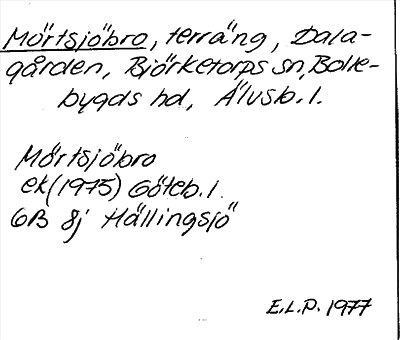 Mörtsjöbro, terräng, Dala-
gården, Björketorps sn, Bolle-
bygds hd, Älvsb. l.
Mörtsjöbro
ek (1975) Göteb. l.
6B 8j Hällingsjö
E.L.P. 1977